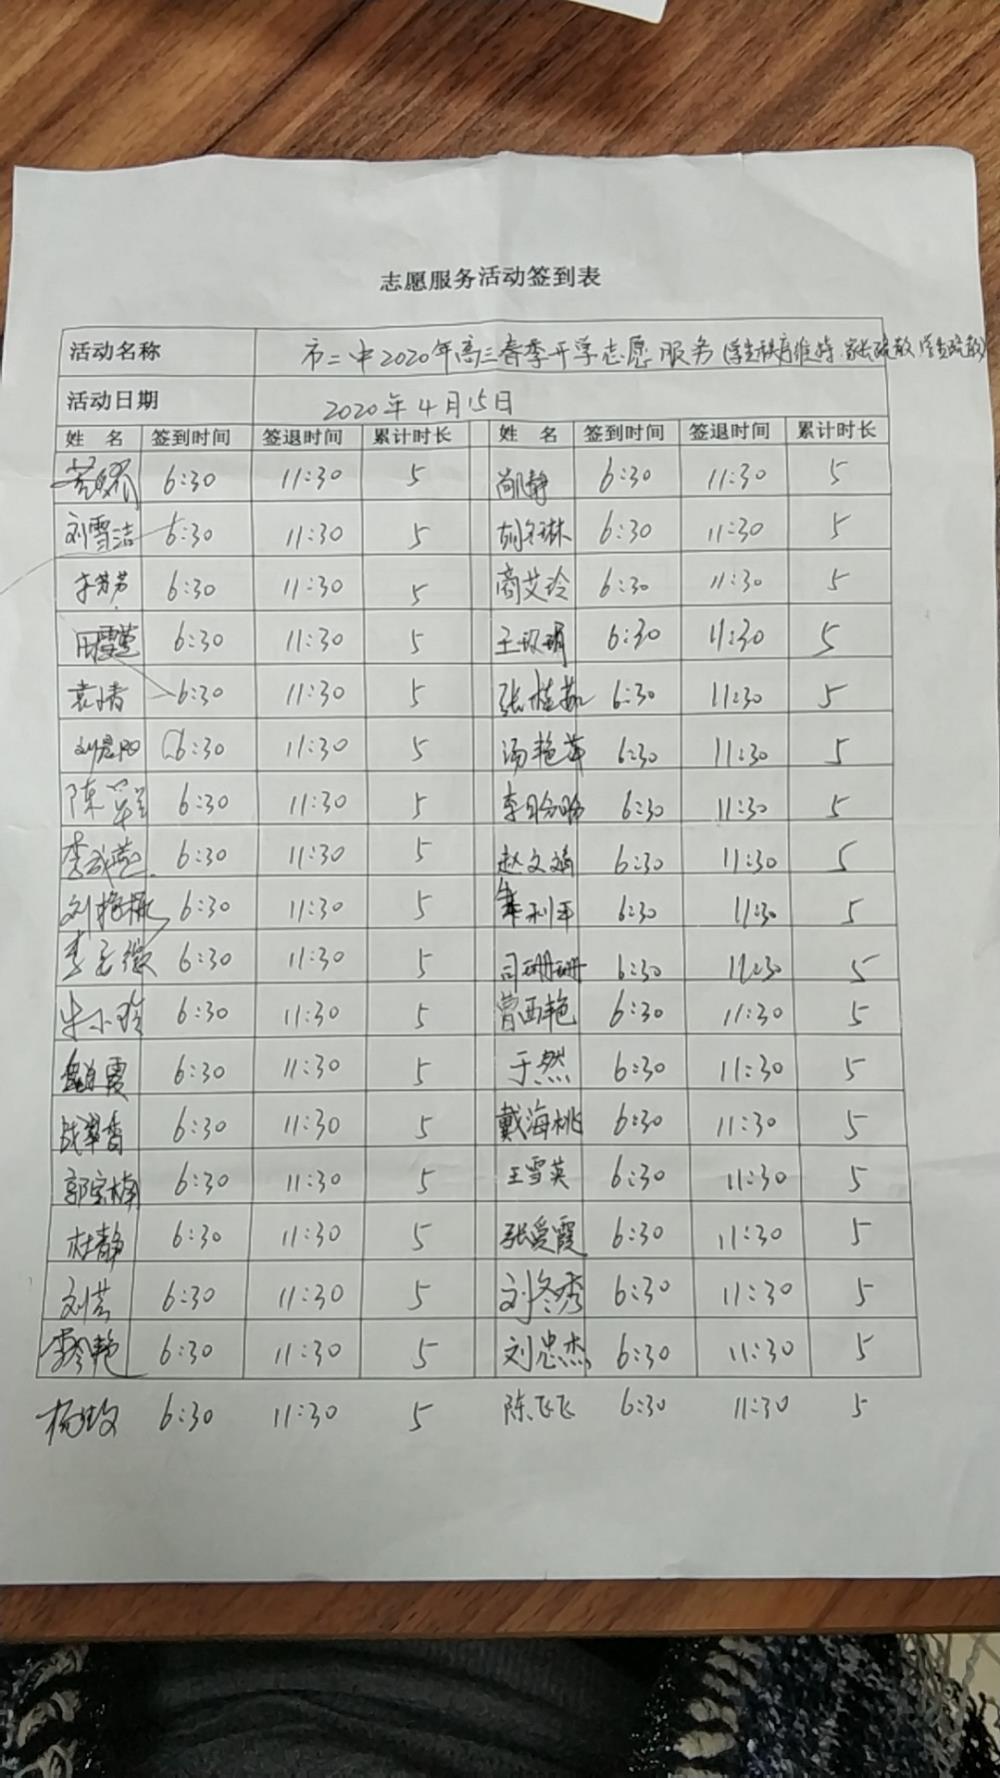 志愿服务活动签到表
活动名称 市二中2020年高三春季开学志愿服务(学生秩序维持 家长疏散 学生疏散)
活动日期 2020年4月15日
姓 名 签到时间 签退时间 累计时长 姓 名 签到时间 签退时间 累计时长
6:30 11:30 5 尚静 6:30 11:30 5
刘雪洁 6:30 11:30 5 6:30 11:30 5
李芳芳 6:30 11:30 5 商艾玲 6:30 11:30 5
田雪莲 6:30 11:30 5 王玖娟 6:30 11:30 5
袁清 6:30 11:30 5 张桂茹 6:30 11:30 5
6:30 11:30 5 汤艳萍 6:30 11:30 5
陈翠兰 6:30 11:30 5 李盼盼 6:30 11:30 5
6:30 11:30 5 赵文娟 6:30 11:30 5
6:30 11:30 5 牟利平 6:30 11:30 5
6:30 11:30 5 司珊珊 6:30 11:30 5
6:30 11:30 5 曾西艳 6:30 11:30 5
6:30 11:30 5 于然 6:30 11:30 5
战翠香 6:30 11:30 5 戴海桃 6:30 11:30 5
郭宝楠 6:30 11:30 5 王雪英 6:30 11:30 5
杜静 6:30 11:30 5 张爱霞 6:30 11:30 5
刘芸 6:30 11:30 5 刘冬秀 6:30 11:30 5
6:30 11:30 5 刘忠杰 6:30 11:30 5
杨玫 6:30 11:30 5 陈飞飞 6:30 11:30 5